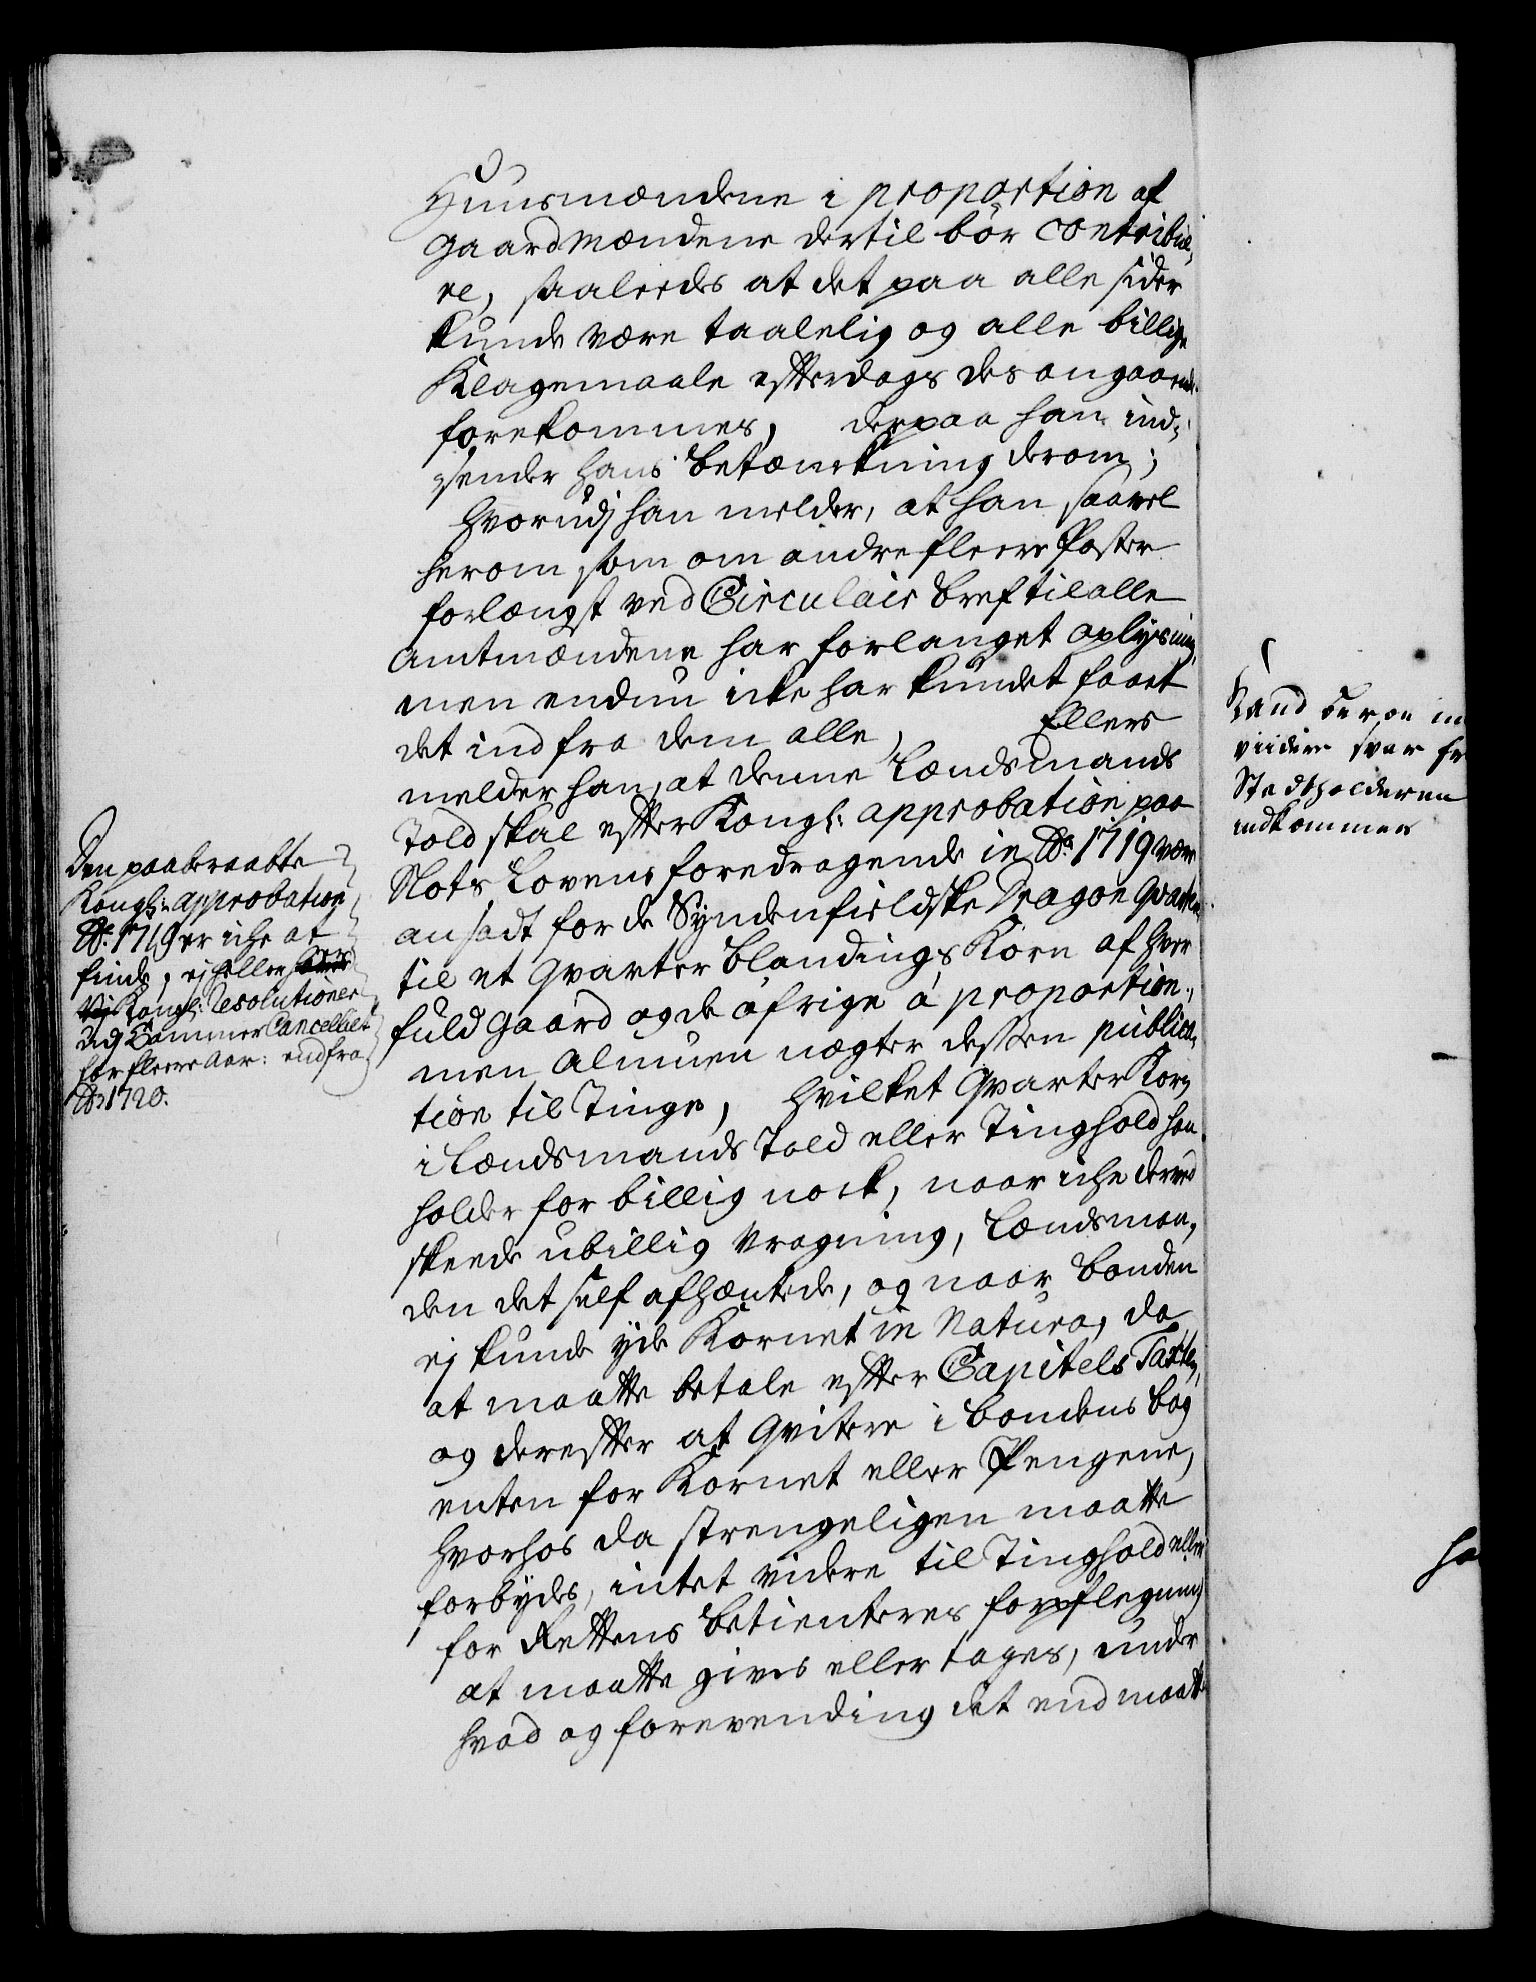 Huusmændene i proportion af
Gaardmændene dertil bör contribue,
re, saaleedes at det paa alle sider
kunde være taalelig og alle billige
Klagemaale efterdags des angaaende
forekommes, derpaa han ind,
sender hans betænkning derom;
hvorudj han melder, at han saavel
herom som om andre fleere Poster
forlængst ved Circulair bref til alle
Amtmændene har forlanget oplysning,
men endnu icke har kundet faaet
det ind fra dem alle, Ellers
melder han, at denne Lændsmands
Told skal efter Kongl: approbation paa
Slots Lovens foredragende in Ao. 1719 være
ansadt for de Syndenfieldske Dragon Qvarterer
til et Qvarter blandings Korn af hver
fuld Gaard og de öfrige á proportion,
men Almuen nægter dessen publica,
tion til Tinge, hvilket Qvarter Korn
i Lændsmands Told eller Tinghold han
holder for billig nock, naar iche derved
skeede ubillig vragning, Lændsman,
den det self afhæntede, og naar bonden
ej kunde yde Kornet in Natura, da
at maatte betale efter Capitels Taxten,
og derefter at qvitere i bondens bog
enten for Kornet eller Pengene,
hvorhos da strengeligen maatte
forbydes, intet videre til Tinghold eller
for Rettens betienteres forpflegning
at maatte gives eller tages, under
hvad og forevending det end maatte
Den paaberaabte
Kongl: approbation
Ao. 1719 er iche at
finde, ej heller
Kongl: Resolutioner
udj Cammer Cancelliet
for fleere Aar: end fra
Ao 1720.
Kand beroe in
viidere svar fr
Stadtholderen
indkommer
ha